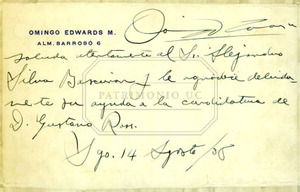 OMINGO EDWARDS M.
ALM. BARROSO 6
saluda atentamente al Sr. Alejandro
Silva y le agradece debida
mente su ayuda a la candidatura de
D. Gustavo Ross.
Sgo. 14 Agosto/38
PATRIMONIO UC